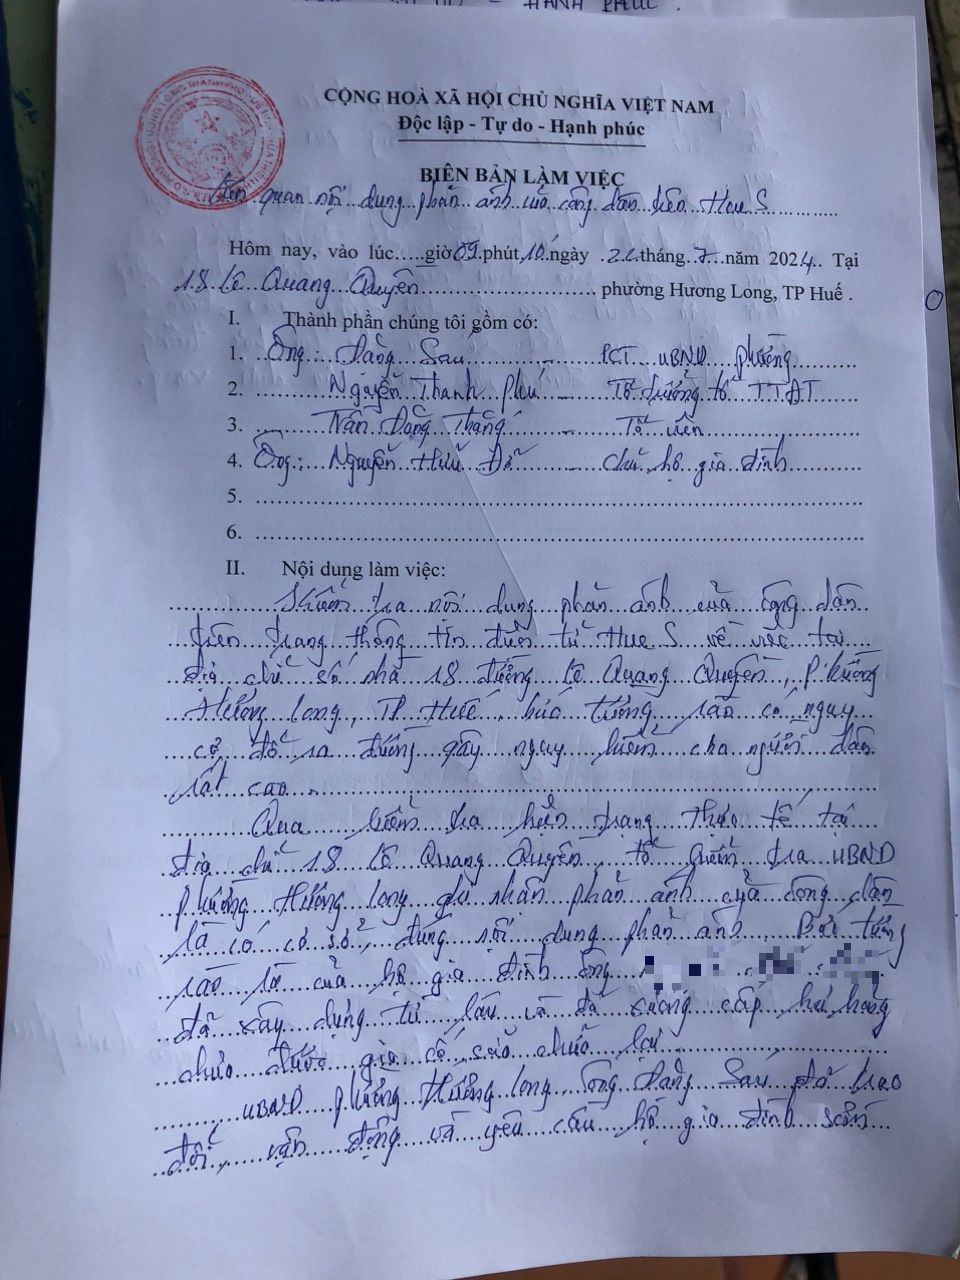 HẠNH PHÚC.
CỘNG HOÀ XÃ HỘI CHỦ NGHĨA VIỆT NAM
Độc lập - Tự do - Hạnh phúc
BIÊN BẢN LÀM VIỆC
Liên quan nội dung phản ánh của công dân trên Hue S
Hôm nay, vào lúc.....giờ 09 phút 10 ngày 22 tháng 7 năm 2024. Tại
18 Lê Quang Quyền phường Hương Long, TP Huế.
I. Thành phần chúng tôi gồm có:
1. Ông: Đặng Sau - PCT UBND phường
2. Nguyễn Thanh Phú - Tổ trưởng tổ TTĐT
3. Trần Đăng Thắng - Tổ viên
4. Ông: Nguyễn Hữu Đổ - Chủ hộ gia đình
5.
6.
II. Nội dung làm việc:
Kiểm tra nội dung phản ánh của công dân
trên trang thông tin điện tử Hue S về việc tại
địa chỉ số nhà 18 đường Lê Quang Quyền, phường
Hương Long, TP Huế, bức tường rào có nguy
cơ đổ ra đường gây nguy hiểm cho người dân
rất cao.
Qua kiểm tra hiện trạng thực tế tại
địa chỉ 18 Lê Quang Quyền, tổ kiểm tra UBND
phường Hương Long ghi nhận phản ánh của công dân
là có cơ sở, đúng nội dung phản ánh. Bức tường
rào là của hộ gia đình ông
đã xây dựng từ lâu và đã xuống cấp hư hỏng
chưa được gia cố, sửa chữa lại
UBND phường Hương Long, ông Đặng Sau đã trao
đổi, vận động và yêu cầu hộ gia đình sớm